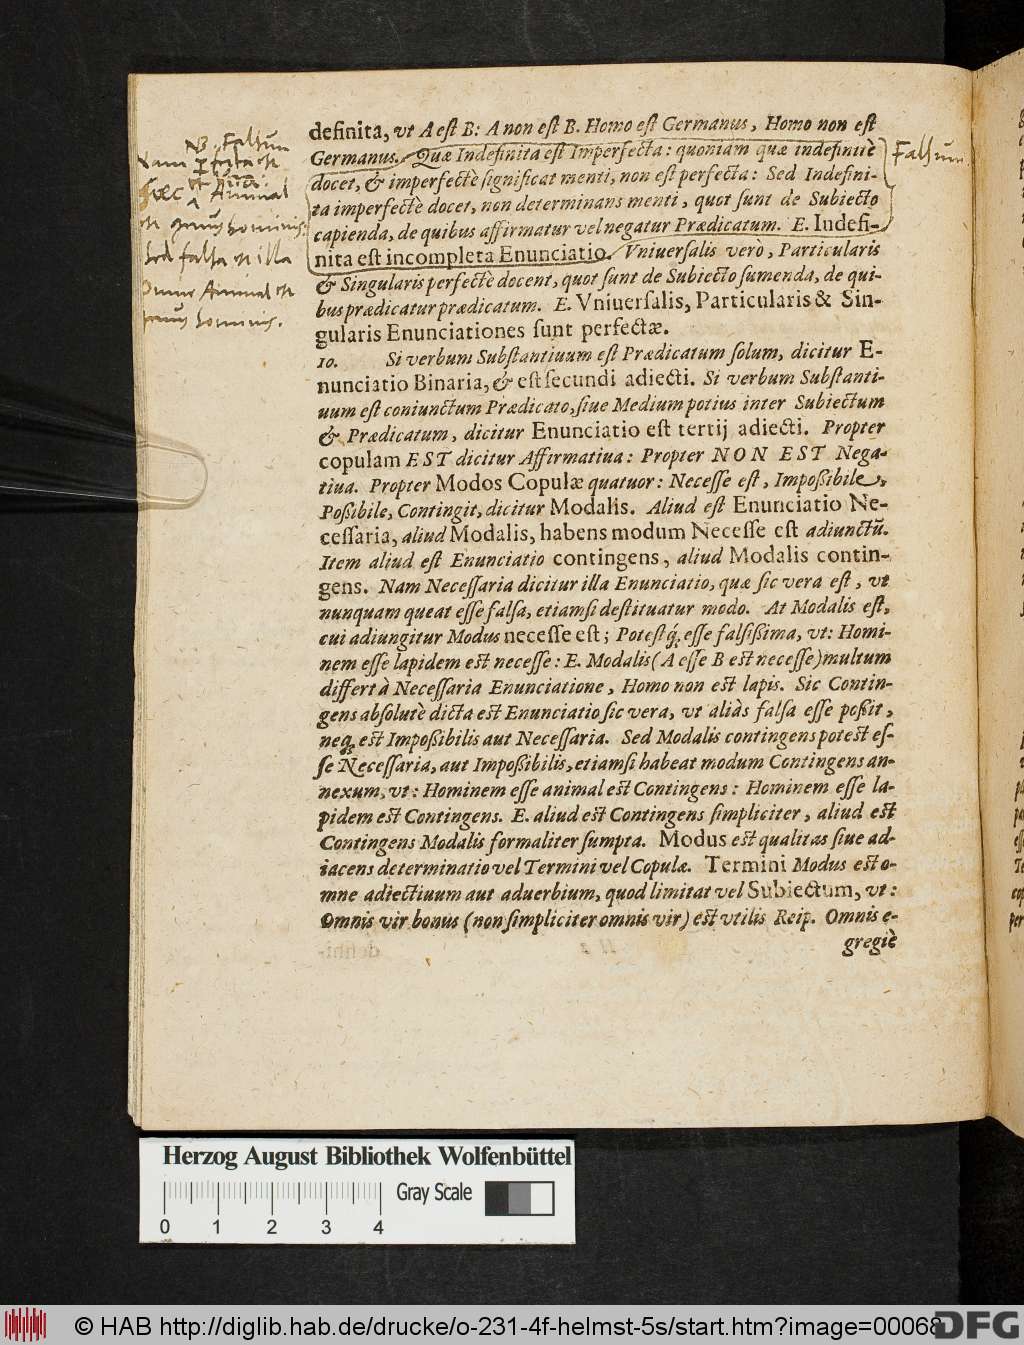 definita, vt A est B: A non est B. Homo est Germanus, Homo non est
Germanus. Quæ Indefinita est Imperfecta: quoniam quæ indefinitè
docet, & imperfectè significat menti, non est perfecta: Sed Indefini-
ta imperfectè docet, non determinans menti, quot sunt de Subiecto
capienda, de quibus affirmatur vel negatur Prædicatum. E. Indefi-
nita est incompleta Enunciatio. Vniuersalis verò, Particularis
& Singularis perfectè docent, quot sunt de Subiecto sumenda, de qui-
bus prædicatur prædicatum. E. Vniuersalis, Particularis & Sin-
gularis Enunciationes sunt perfectæ.
10. Si verbum Substantiuum est Prædicatum solum, dicitur E-
nunciatio Binaria, & est secundi adiecti. Si verbum Substanti-
uum est coniunctum Prædicato, siue Medium potius inter Subiectum
& Prædicatum, dicitur Enunciatio est tertij adiecti. Propter
copulam EST dicitur Affirmatiua: Propter NON EST Nega-
tiua. Propter Modos Copulæ quatuor: Necesse est, Impoßibile,
Poßibile, Contingit, dicitur Modalis. Aliud est Enunciatio Ne-
cessaria, aliud Modalis, habens modum Necesse est adiunctũ.
Item aliud est Enunciatio contingens, aliud Modalis contin-
gens. Nam Necessaria dicitur illa Enunciatio, quæ sic vera est, vt
nunquam queat esse falsa, etiamsi destituatur modo. At Modalis est,
cui adiungitur Modus necesse est; Potestq́; esse falsißima, vt: Homi-
nem esse lapidem est necesse: E. Modalis (A esse B est necesse) multum
differt à Necessaria Enunciatione, Homo non est lapis. Sic Contin-
gens absolutè dicta est Enunciatio sic vera, vt aliàs falsa esse poßit,
neq; est Impoßibilis aut Necessaria. Sed Modalis contingens potest es-
se Necessaria, aut Impoßibilis, etiamsi habeat modum Contingens an-
nexum, vt: Hominem esse animal est Contingens: Hominem esse la-
pidem est Contingens. E. aliud est Contingens simpliciter, aliud est
Contingens Modalis formaliter sumpta. Modus est qualitas siue ad-
iacens determinatio vel Termini vel Copulæ. Termini Modus est o-
mne adiectiuum aut aduerbium, quod limitat vel Subiectum, vt:
Omnis vir bonus (non simpliciter omnis vir) est vtilis Reip. Omnis e-
gregiè
NB. Falsum
Nam
hæc Animal
est genus hominis.
Sed falsa est illa
Omne Animal est
genus hominis.
Falsum
Herzog August Bibliothek Wolfenbüttel
Gray Scale
0 1 2 3 4
© HAB http://diglib.hab.de/drucke/o-231-4f-helmst-5s/start.htm?image=00068
DFG